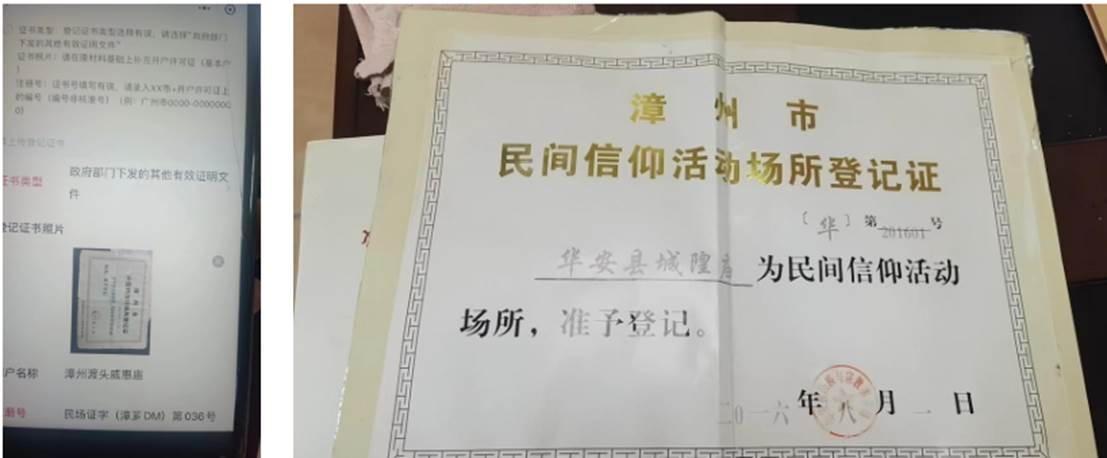 证书类型：登记证书类型选择有误，请选择“政府部门
下发的其他有效证明文件”
证书照片：请在原材料基础上补充开户许可证（基本户
）
注册号：证书号填写有误，请录入XX市+开户许可证上
的编号（编号非核准号）（例：广州市0000-0000000
0）
上传登记证书
证书类型
政府部门下发的其他有效证明文
件
登记证书照片
户名称
漳州渡头威惠庙
册号
民场证字（漳芗DM）第036号
漳州市
民间信仰活动场所登记证
〔华〕第201601号
华安县城隍庙为民间信仰活动
场所，准予登记。
二〇一六年八月一日